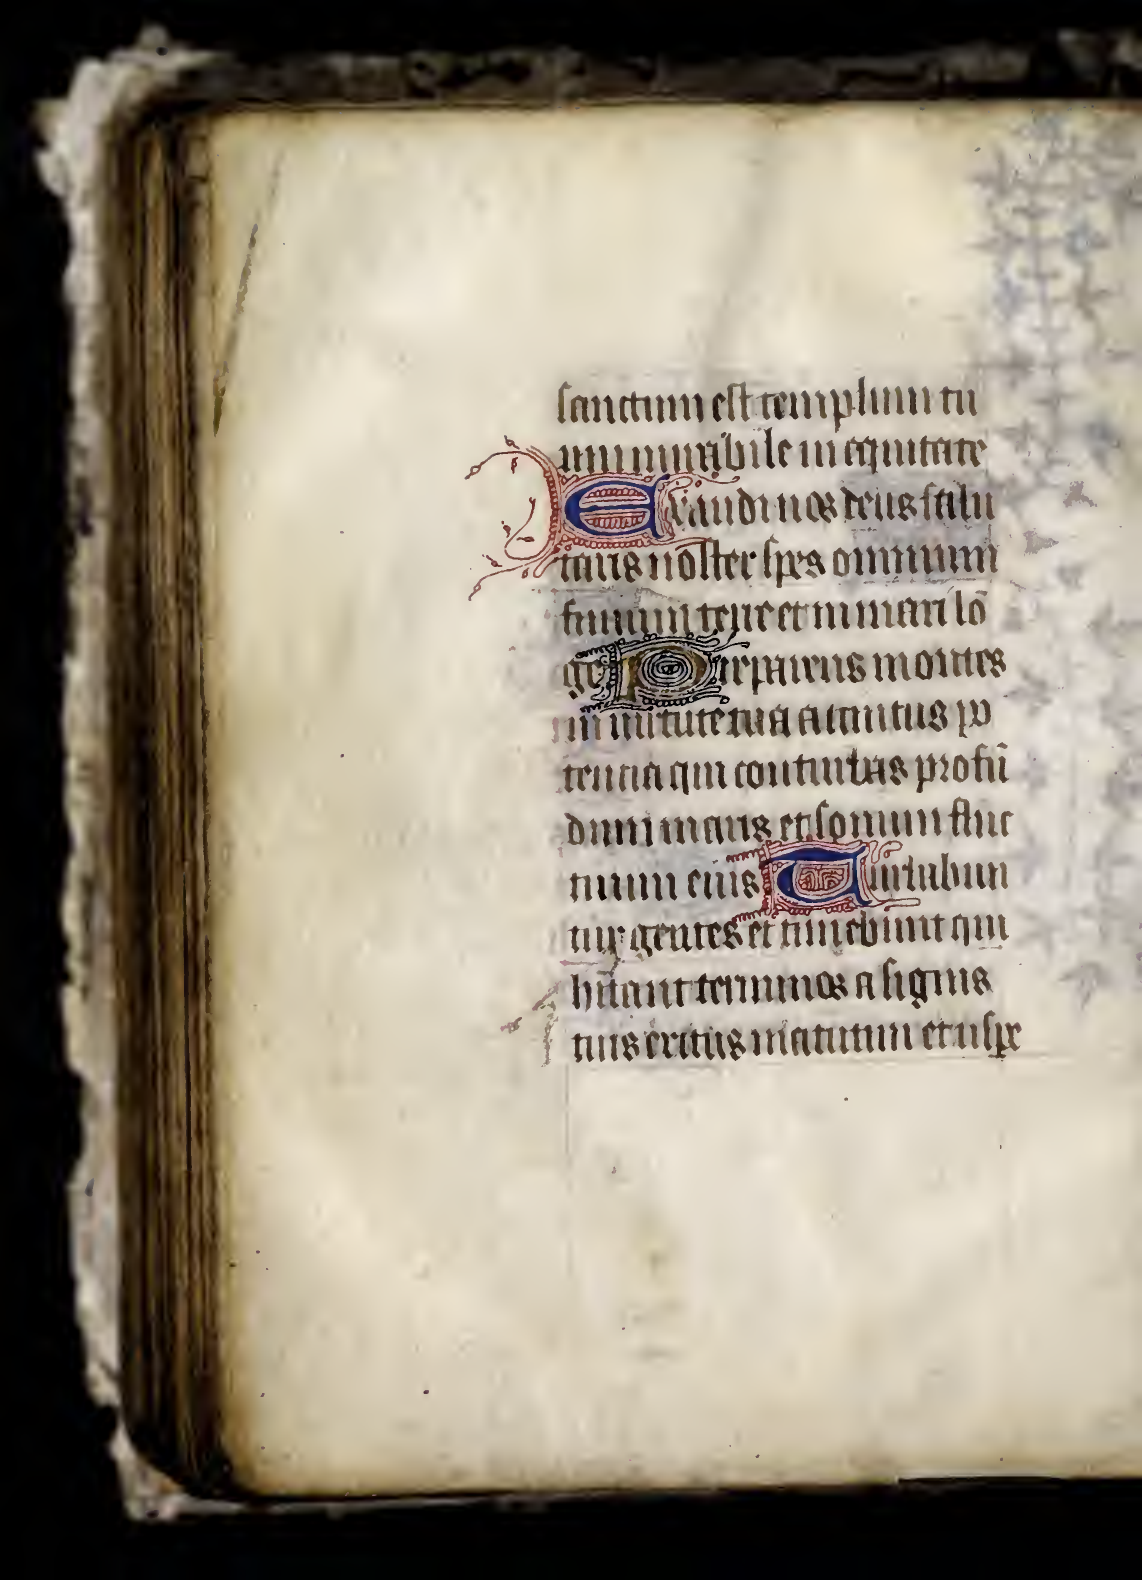 sanctum est templum tu
um mirabile in equitate
Exaudi nos deus salu
taris noster spes omnium
finium terre et in mari lō
ge Preparens montes
in uirtute tua accintus po
tentia qui conturbas profū
dum maris et sonum fluc
tuum eius Turbabun
tur gentes et timebunt qui
hitant terminos a signis
tuis exitus matutini et uespe